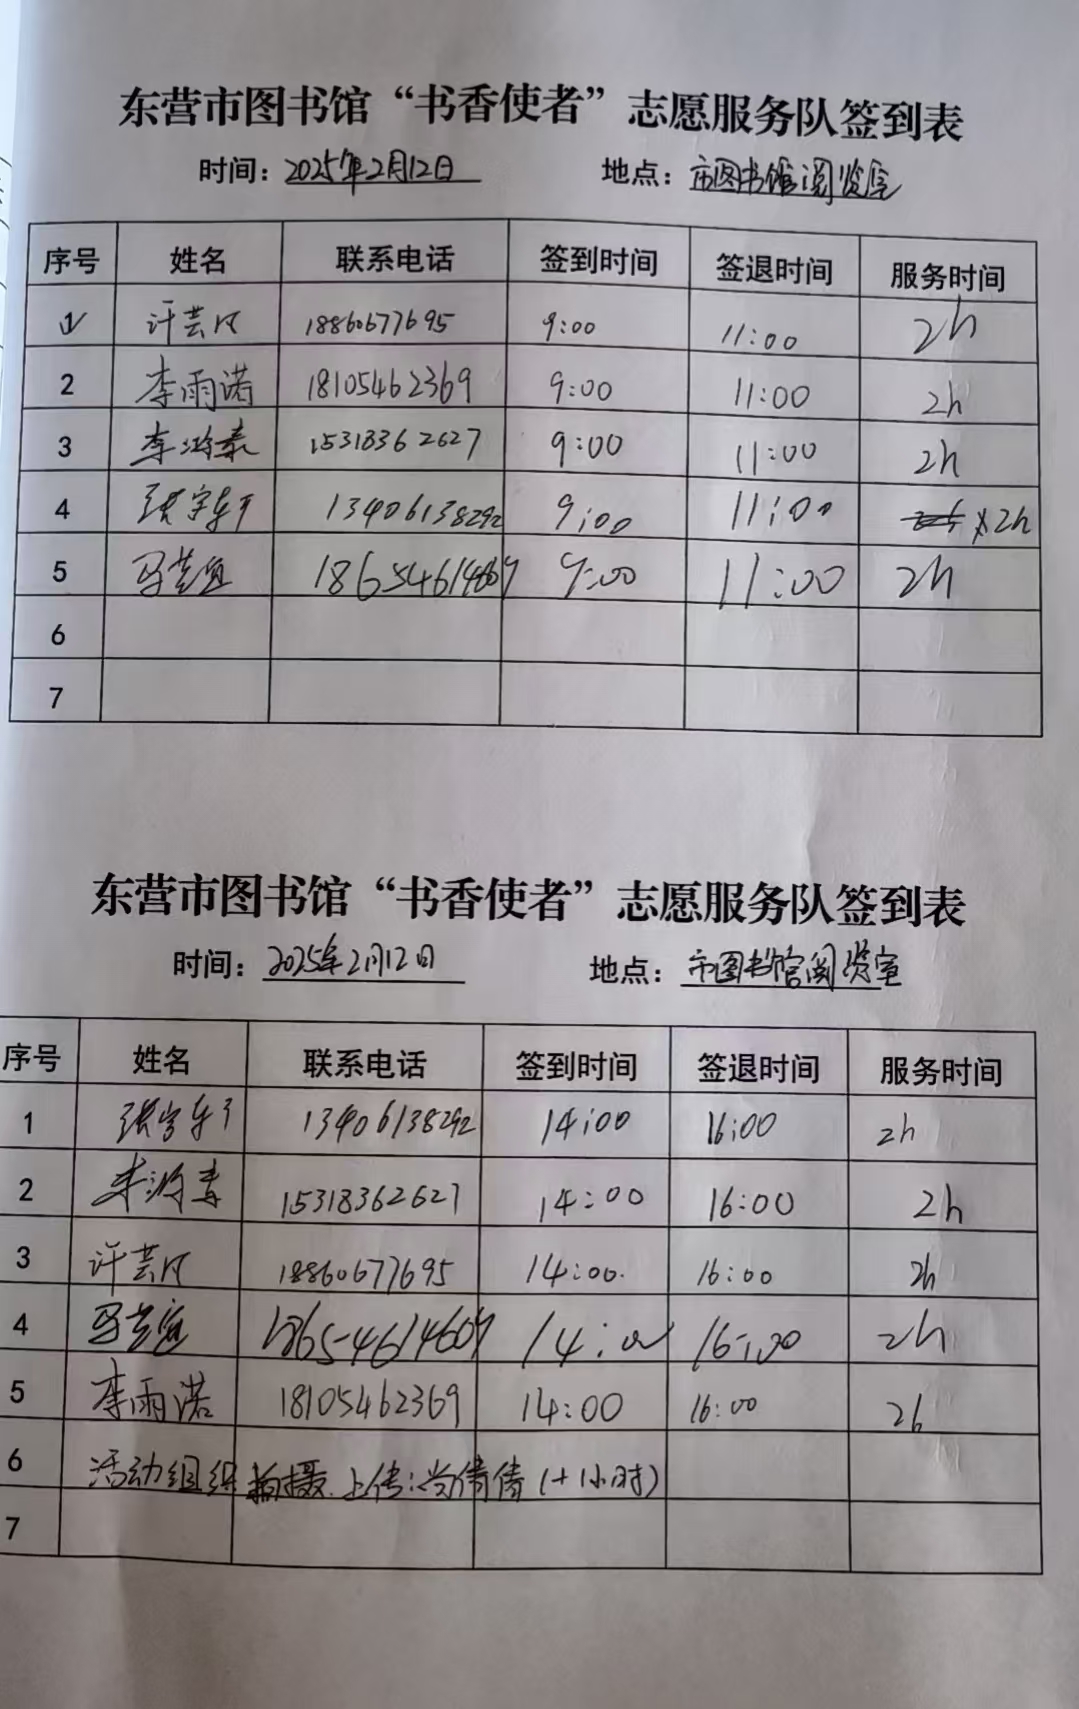 东营市图书馆“书香使者”志愿服务队签到表
时间：2025年2月12日 地点：市图书馆阅览室
序号 姓名 联系电话 签到时间 签退时间 服务时间
1 许芸 18860677695 9:00 11:00 2h
2 李雨诺 18105462369 9:00 11:00 2h
3 李 15318362627 9:00 11:00 2h
4 张宇轩 13406138292 9:00 11:00 2h
5 马艺宜 9:00 11:00 2h
6
7
东营市图书馆“书香使者”志愿服务队签到表
时间：2025年2月12日 地点：市图书馆阅览室
序号 姓名 联系电话 签到时间 签退时间 服务时间
1 张宇轩 13406138292 14:00 16:00 2h
2 李 15318362627 14:00 16:00 2h
3 许芸 18860677695 14:00. 16:00 2h
4 马艺宜 18654614609 14:00 16:00 2h
5 李雨诺 18105462369 14:00 16:00 2h
6 活动组织 拍摄.上传:尚倩倩(+1小时)
7